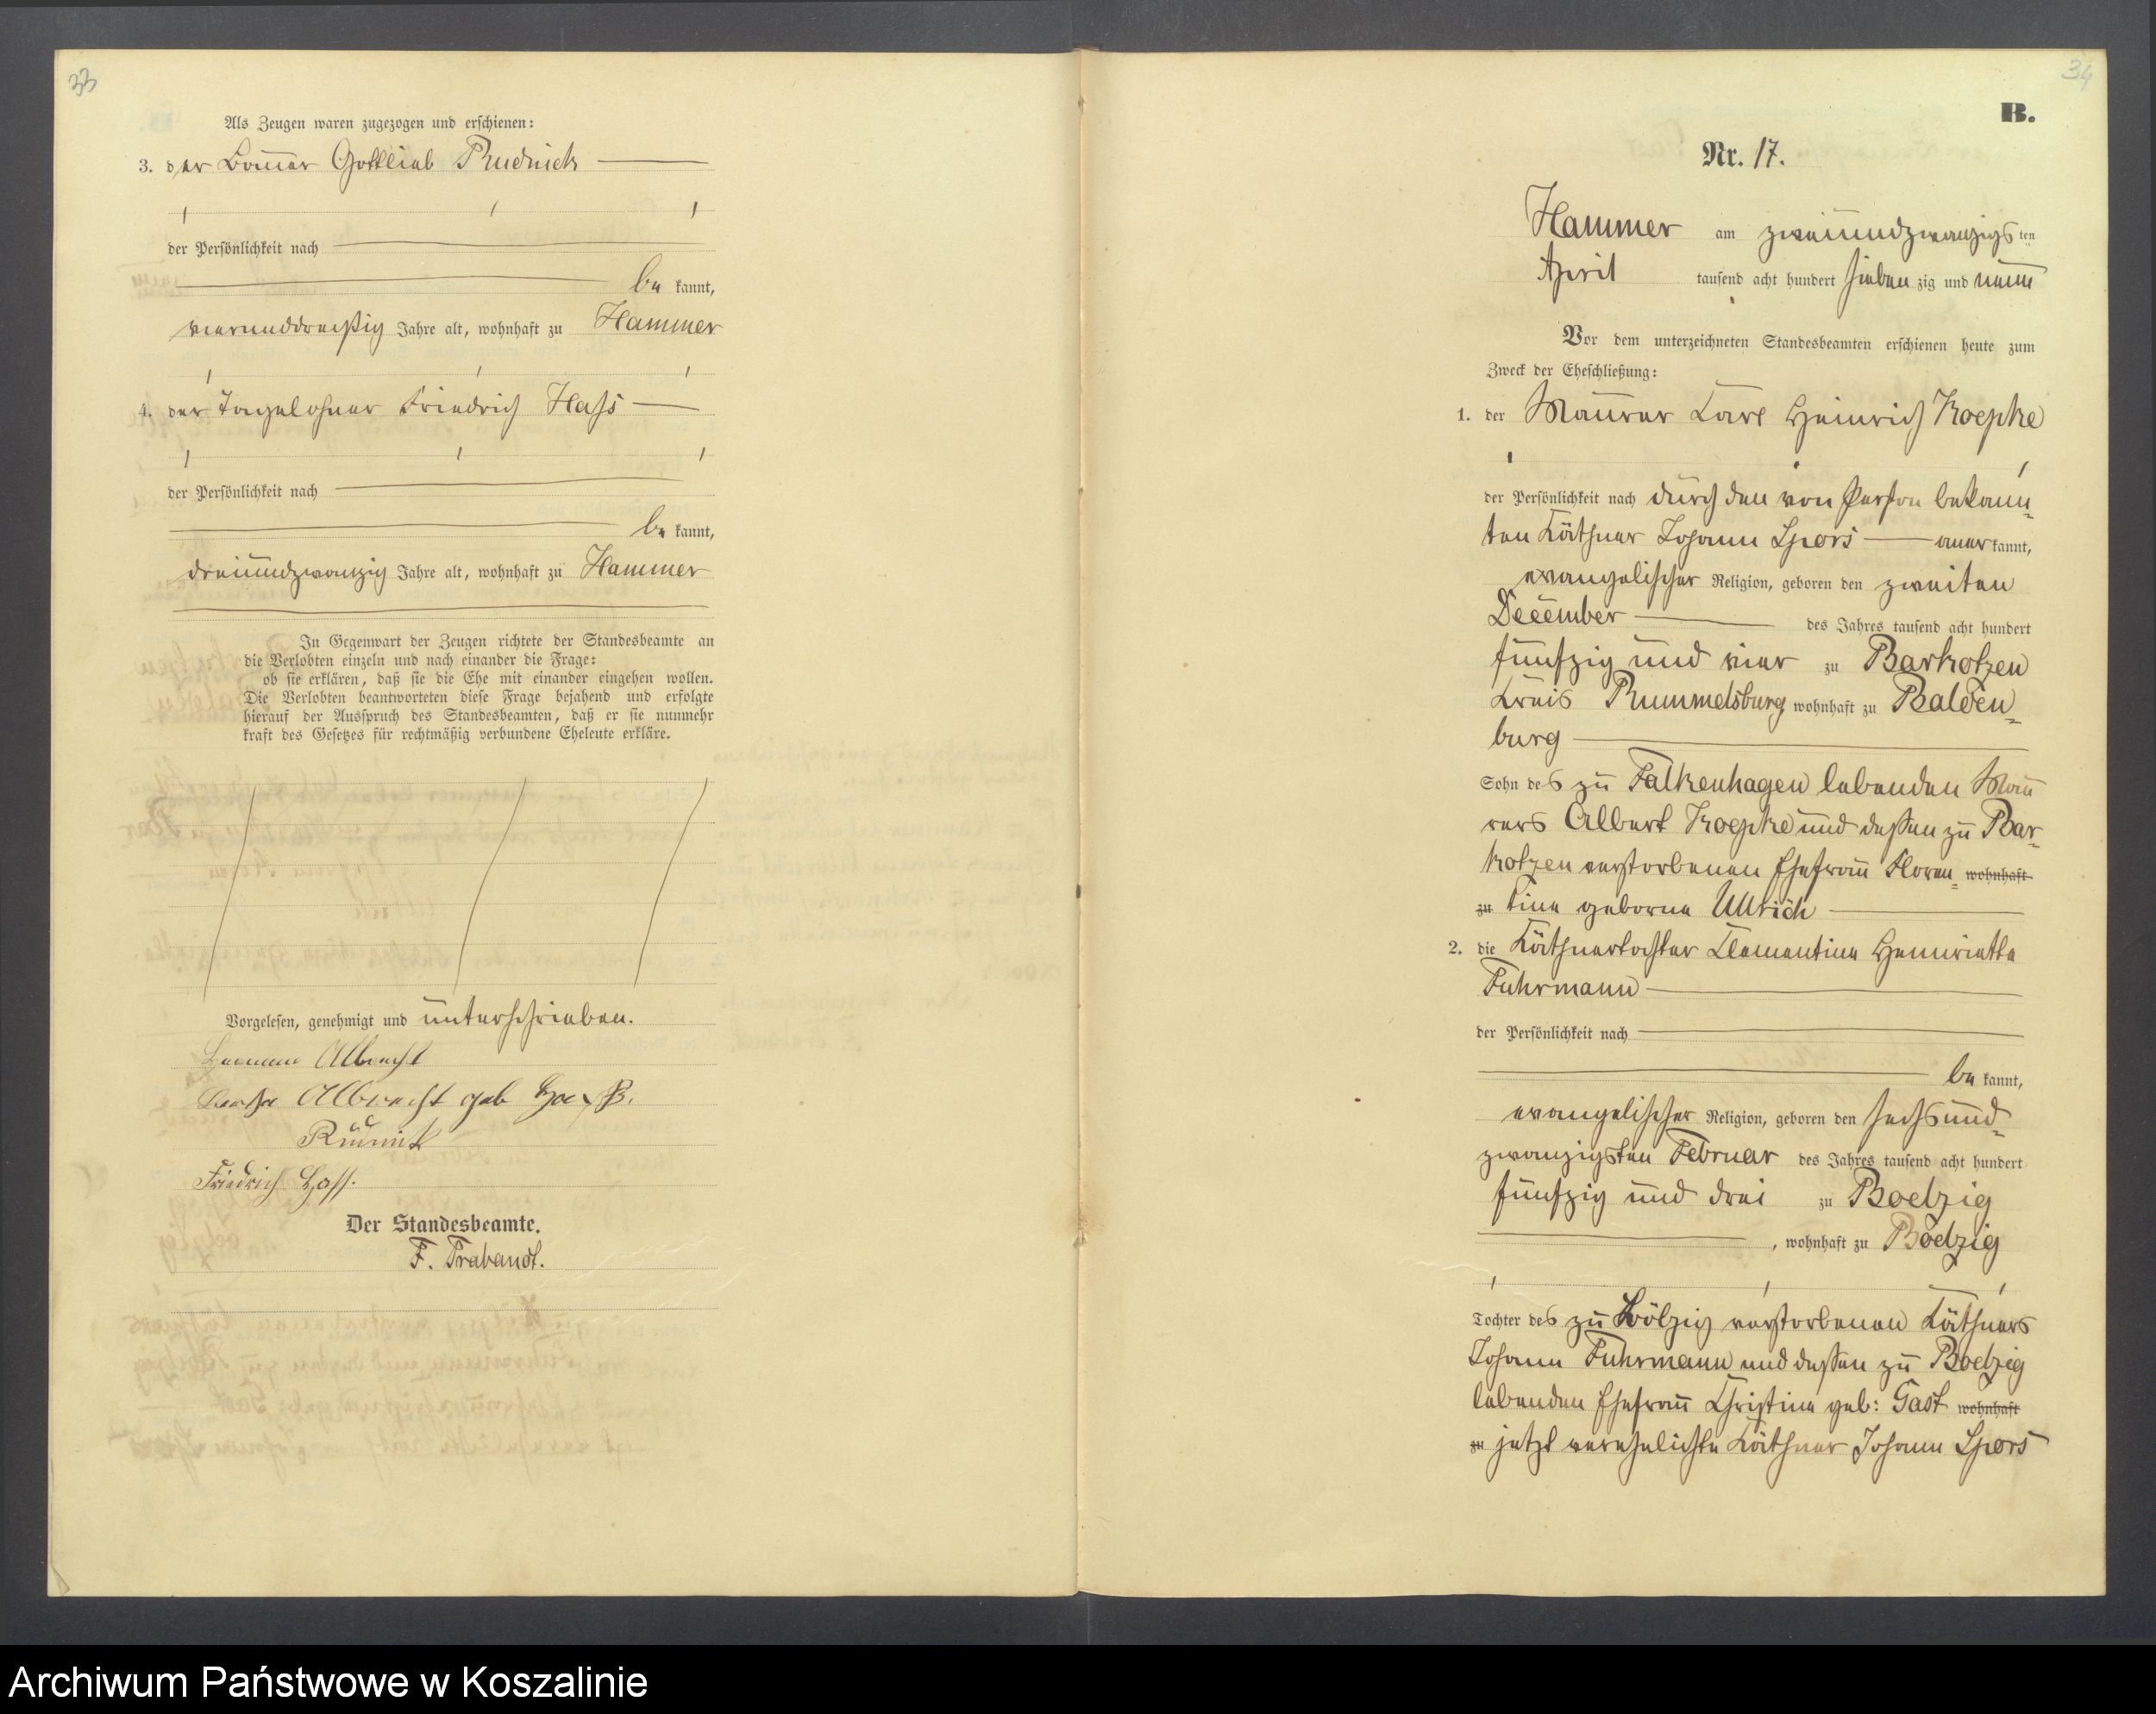 33
Als Zeugen waren zugezogen und erschienen:
3. der Gottlieb Rudnick
der Persönlichkeit nach
be kannt,
vierunddreißig Jahre alt, wohnhaft zu Hammer
4. der Tagelöhner Friedrich Hass
der Persönlichkeit nach
be kannt,
dreiundzwanzig Jahre alt, wohnhaft zu Hammer
In Gegenwart der Zeugen richtete der Standesbeamte an
die Verlobten einzeln und nach einander die Frage:
ob sie erklären, daß sie die Ehe mit einander eingehen wollen.
Die Verlobten beantworteten diese Frage bejahend und erfolgte
hierauf der Ausspruch des Standesbeamten, daß er sie nunmehr
kraft des Gesetzes für rechtmäßig verbundene Eheleute erkläre.
Vorgelesen, genehmigt und unterschrieben.
Albrecht
Albrecht geb
Friedrich Hass.
Der Standesbeamte.
F. Trabandt.
34
B.
Nr. 17.
Hammer am zweiundzwanzigs ten
April tausend acht hundert sieben zig und neun
Vor dem unterzeichneten Standesbeamten erschienen heute zum
Zweck der Eheschließung:
1. der Maurer Carl Heinrich Koepke
der Persönlichkeit nach durch den von Person bekann-
ten Käthner Johann Spors aner kannt,
evangelischer Religion, geboren den zweiten
December des Jahres tausend acht hundert
fünfzig und vier zu Barkotzen
Kreis Rummelsburg wohnhaft zu Balden-
burg
Sohn des zu Falkenhagen lebenden Mau
rers Albert Koepke und dessen zu Bar-
kotzen verstorbenen Ehefrau Floren- wohnhaft
zu tine geborne Ullrich
2. die Käthnertochter Clementine Henriette
Fuhrmann
der Persönlichkeit nach
be kannt,
evangelischer Religion, geboren den sechsund-
zwanzigsten Februar des Jahres tausend acht hundert
fünfzig und drei zu Boelzig
, wohnhaft zu Boelzig
Tochter des zu Bölzig verstorbenen Käthners
Johann Fuhrmann und dessen zu Boelzig
lebenden Ehefrau Christine geb: Gast wohnhaft
zu jetzt verehelichte Käthner Johann Spors
Archiwum Państwowe w Koszalinie